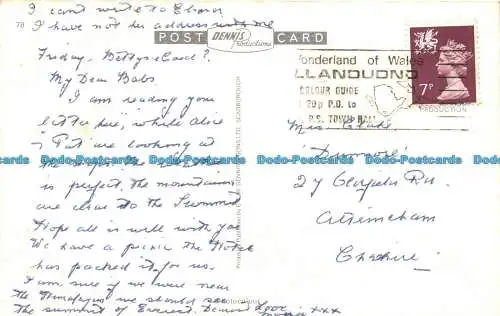 I can't write to Elinor
I have not her address with me
78
POST CARD
DENNIS
Productions
Friday. Betty's Card?
My Dear Babs
I am reading your
letter here, while Alice
& Pat are looking at
the
is perfect. the mountains
are clear to the Summit
Hope all is well with you
We have a picnic the Hotel
has packed it for us.
I am sure if we were near
the Himalayas we should see
the summit of Everest. Dearest Love
xxx
Wonderland of Wales
LLANDUDNO
COLOUR GUIDE
20p P.O. to
P.S. TOWN HALL
7P
Miss
27
Altrincham
Cheshire
Dodo-Postcards Dodo-Postcards Dodo-Postcards Dodo-Postcards Dodo-Postcards
Dodo-Postcards Dodo-Postcards Dodo-Postcards Dodo-Postcards Dodo-Postcards